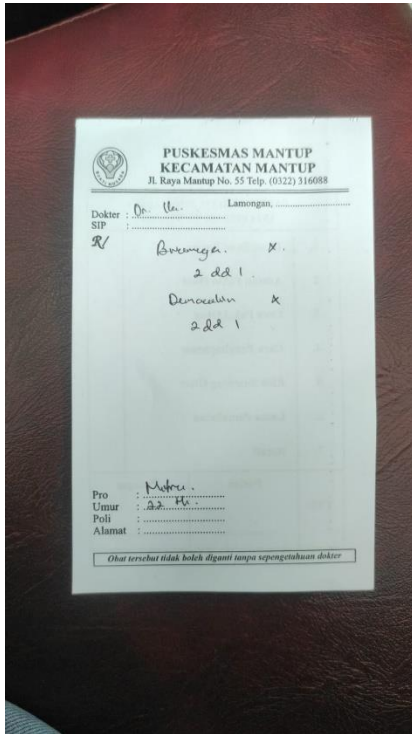 PUSKESMAS MANTUP
KECAMATAN MANTUP
Jl. Raya Mantup No. 55 Telp. (0322) 316088
Lamongan, ..............................
Dokter : Dr.
SIP : ..............................
R/
X.
2 dd 1.
X
2 dd 1
Pro :
Umur : 22 th.
Poli : ..............................
Alamat : ..............................
Obat tersebut tidak boleh diganti tanpa sepengetahuan dokter